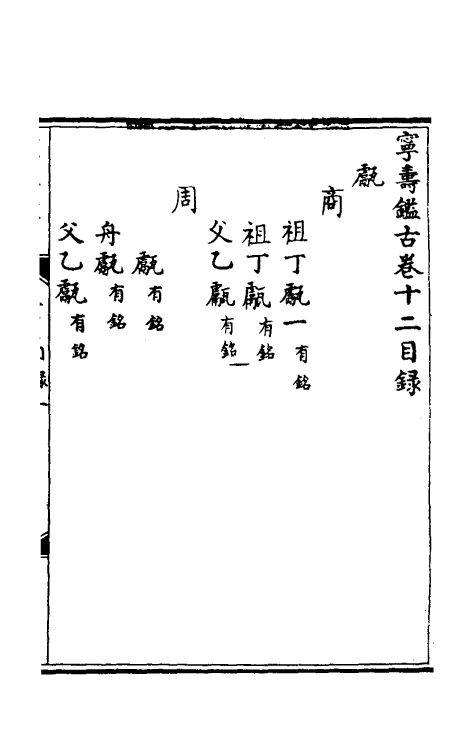 寧壽鑑古卷十二目録
甗
商
祖丁甗一有銘
祖丁甗有銘
父乙甗有銘
周
甗有銘
舟甗有銘
父乙甗有銘